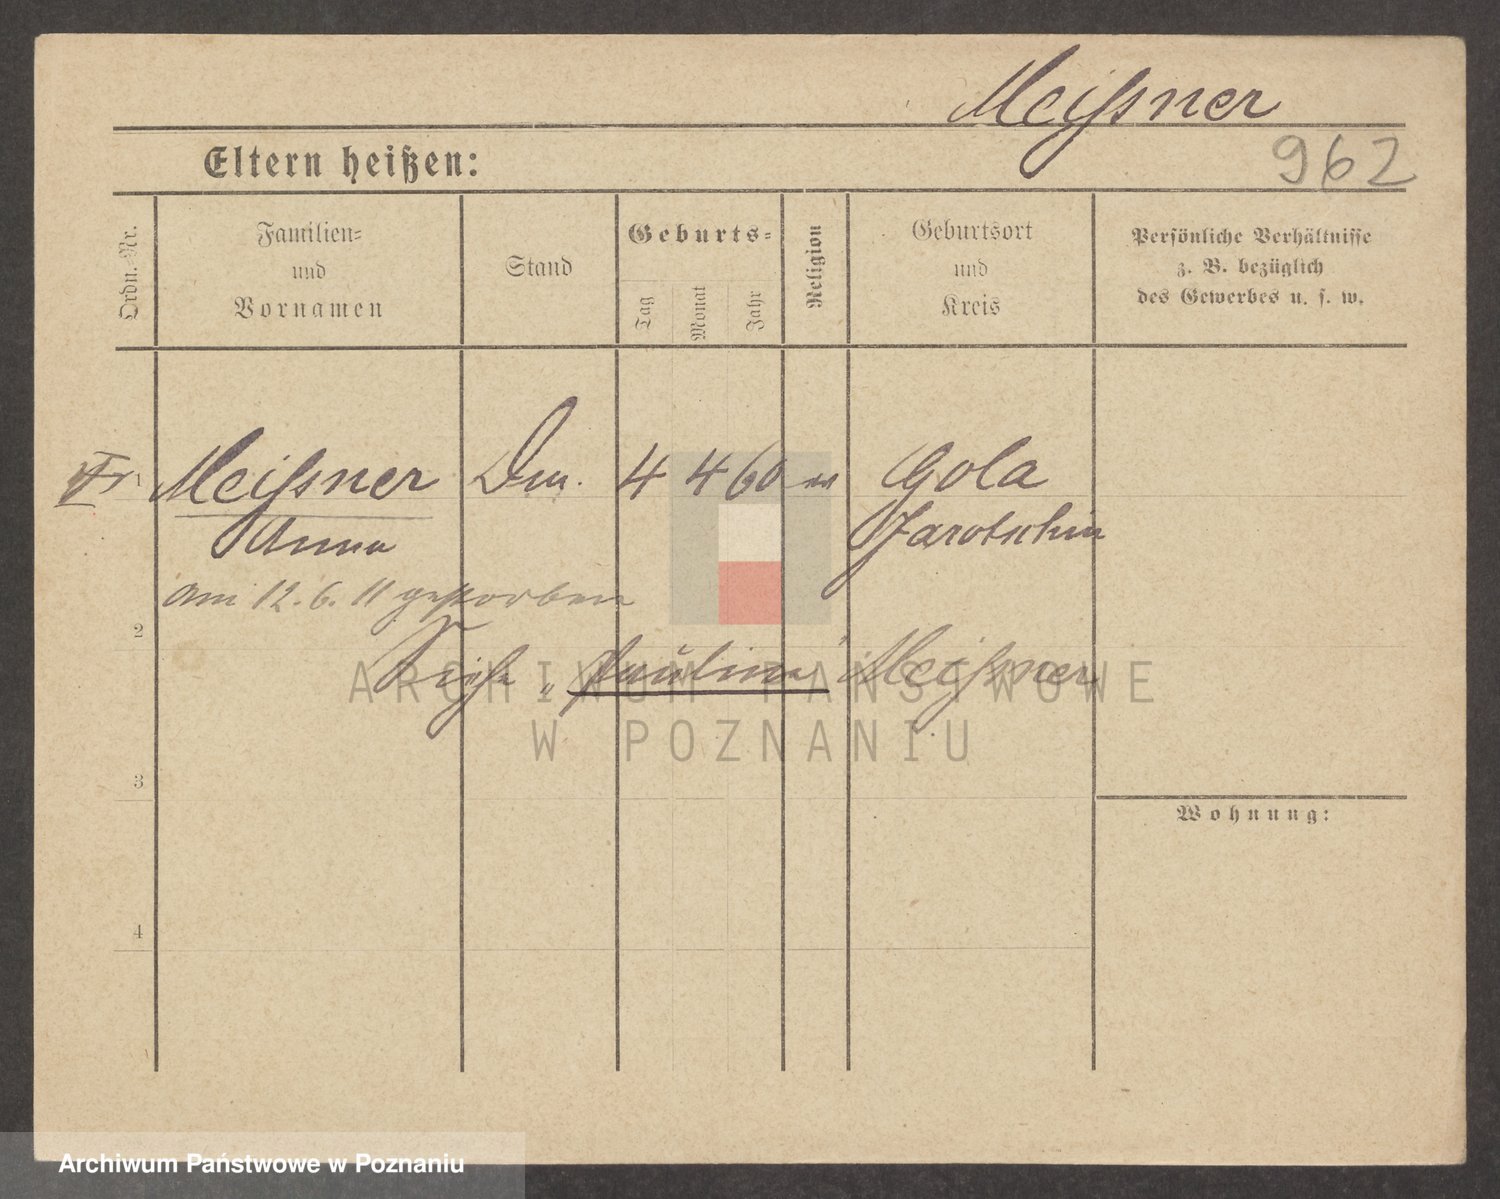 Meißner
962
Eltern heißen:
Ordn.-Nr.
Familien-
und
Vornamen
Stand
Geburts-
Tag
Monat
Jahr
Religion
Geburtsort
und
Kreis
Persönliche Verhältnisse
z. B. bezüglich
des Gewerbes u. s. w.
Fr 1 Meißner 4 4 60 Gola
Anna Jarotschin
am 12. 6. 11 gestorben
2
Siehe „Pauline" Meißner
ARCHIWUM PAŃSTWOWE
W POZNANIU
3
Wohnung:
4
Archiwum Państwowe w Poznaniu